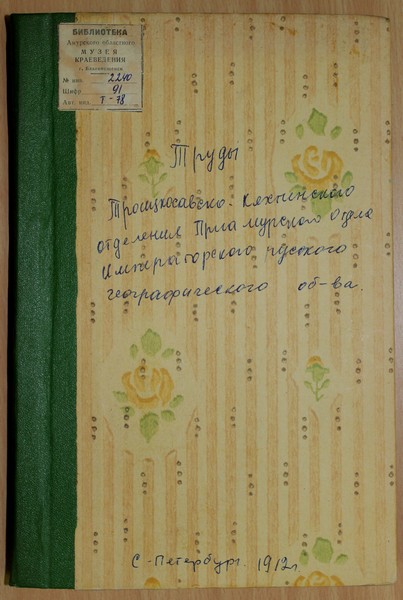 БИБЛИОТЕКА
Амурского областного
МУЗЕЯ
КРАЕВЕДЕНИЯ
г. Благовещенск
№ инв. 2240
Шифр 91
Авт. знак Т-78
Труды
Троицкосавско-Кяхтинского
отделения Приамурского Отдела
Императорского русского
географического об-ва.
С-Петербург 1912г